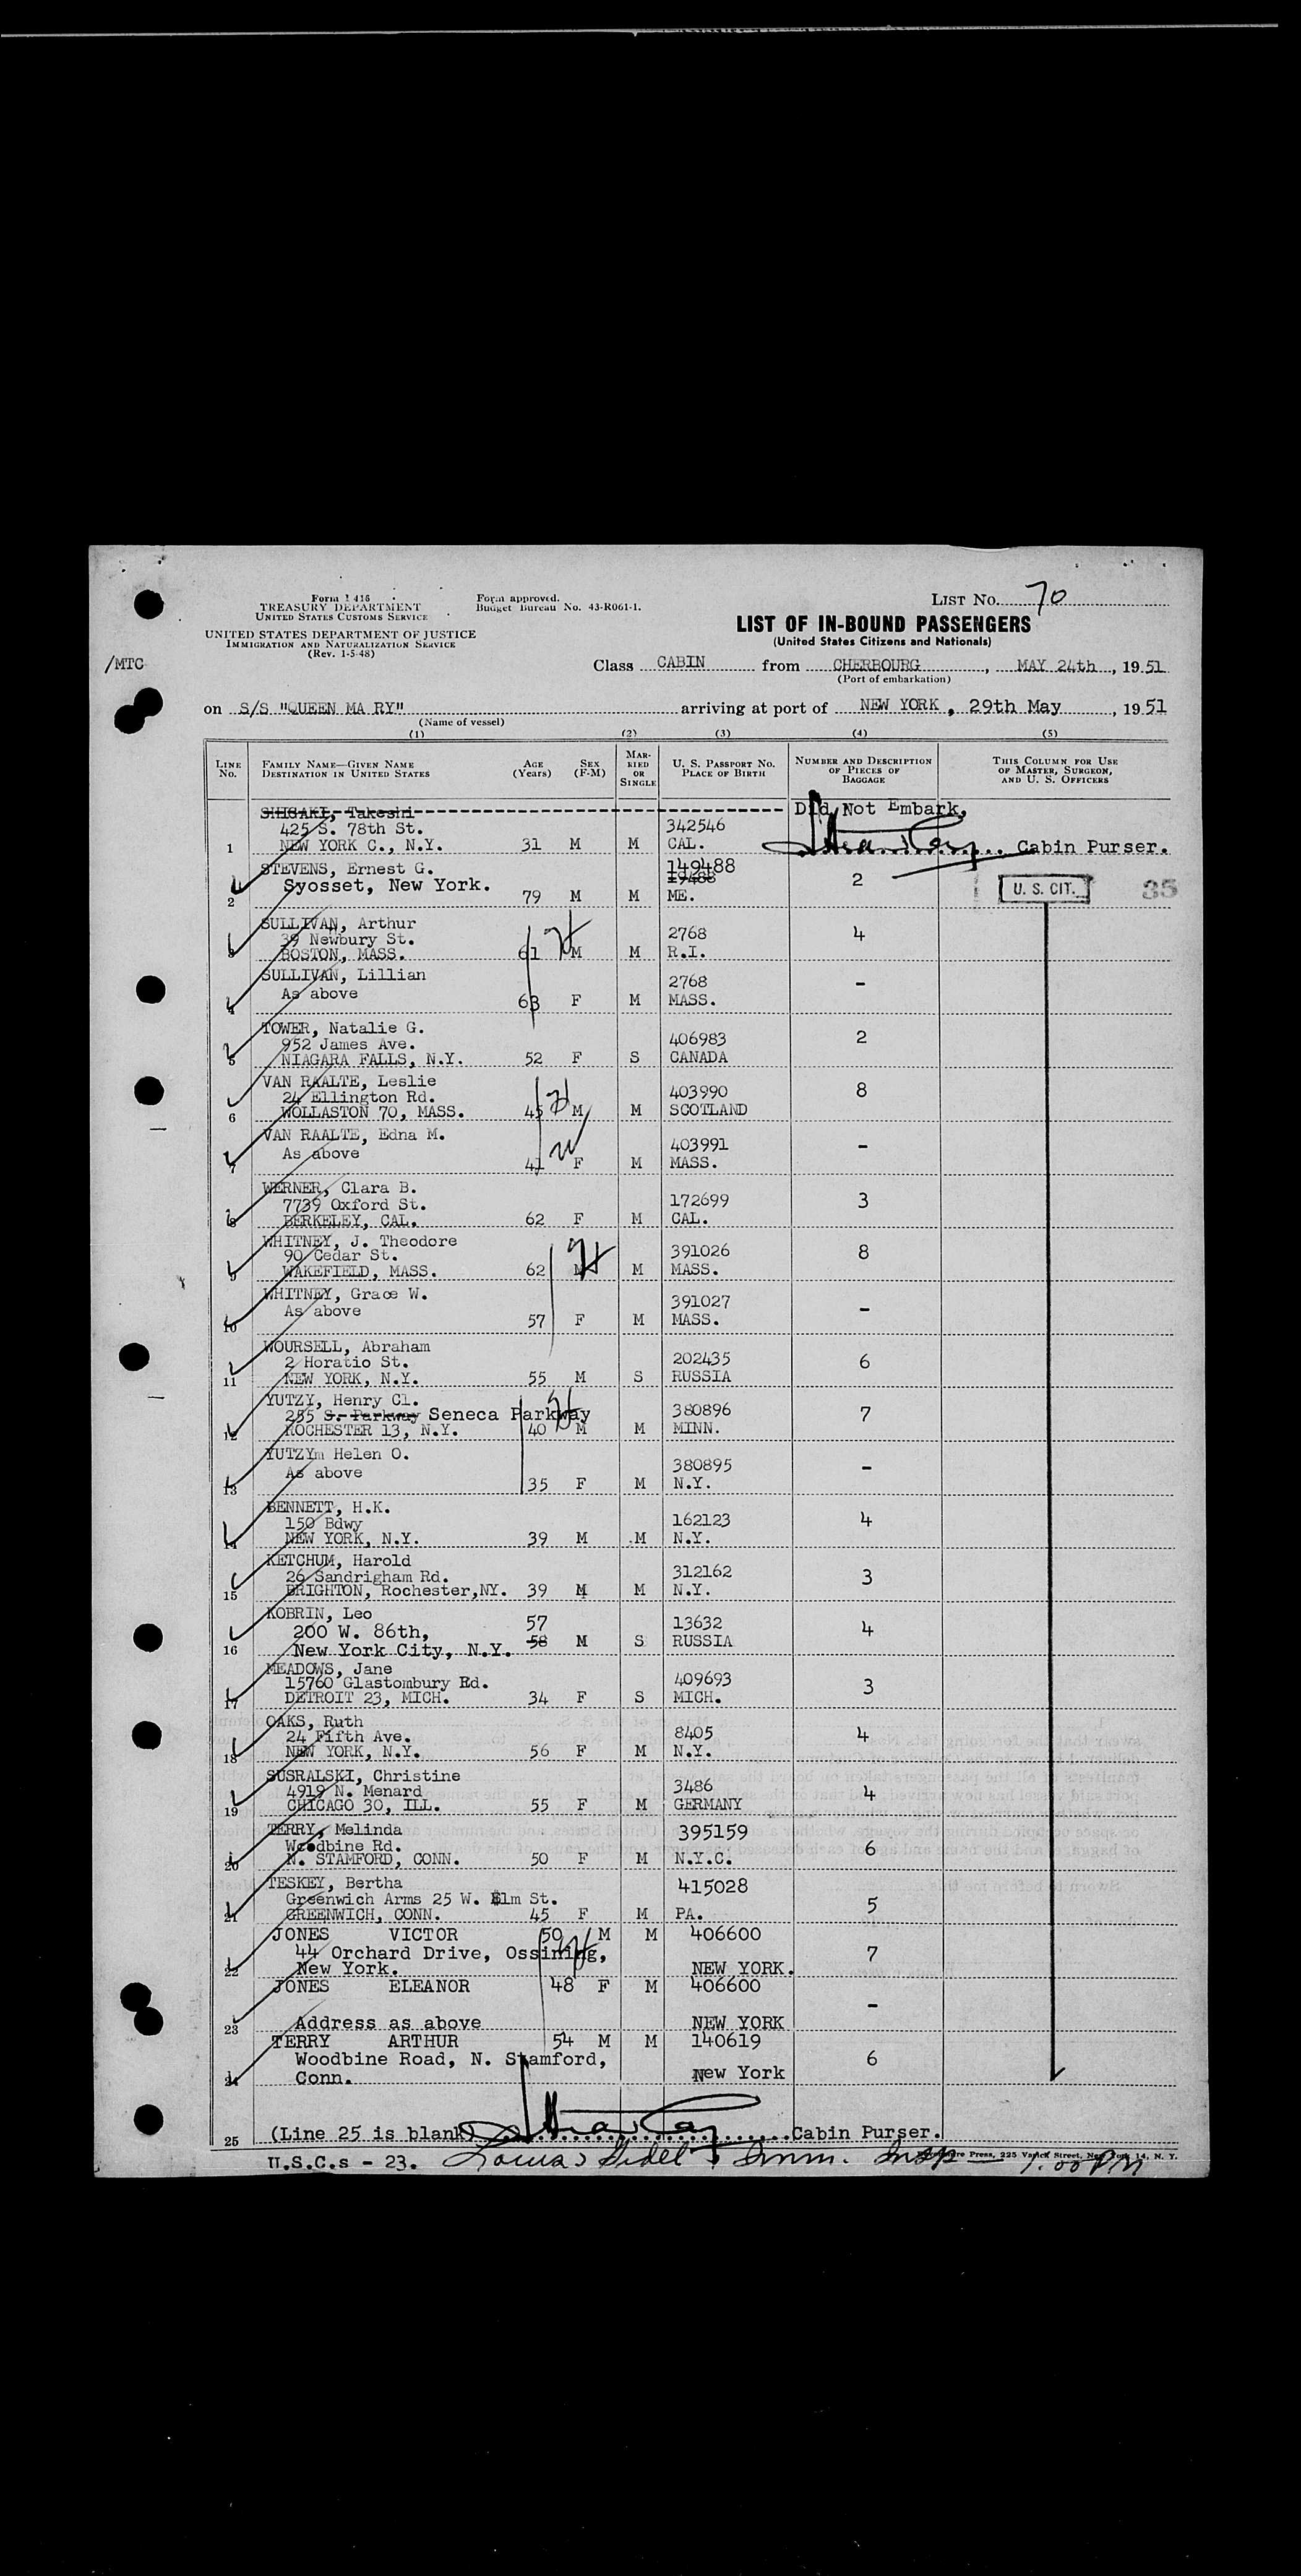 Form I 416
TREASURY DEPARTMENT
UNITED STATES CUSTOMS SERVICE
UNITED STATES DEPARTMENT OF JUSTICE
IMMIGRATION AND NATURALIZATION SERVICE
(Rev. 1-5-48)
Form approved.
Budget Bureau No. 43-R061-1.
LIST NO. 70
LIST OF IN-BOUND PASSENGERS
(United States Citizens and Nationals)
/MTC
Class CABIN from CHERBOURG, MAY 24th, 1951
(Port of embarkation)
on S/S "QUEEN MA RY" arriving at port of NEW YORK, 29th May, 1951
(Name of vessel)
(1) (2) (3) (4) (5)
LINE NO. FAMILY NAME—GIVEN NAME DESTINATION IN UNITED STATES AGE (Years) SEX (F-M) MARRIED OR SINGLE U. S. PASSPORT NO. PLACE OF BIRTH NUMBER AND DESCRIPTION OF PIECES OF BAGGAGE THIS COLUMN FOR USE OF MASTER, SURGEON, AND U. S. OFFICERS
SHIGAKI, Takeshi Did Not Embark,
425 S. 78th St. 342546
1 NEW YORK C., N.Y. 31 M M CAL. Cabin Purser.
STEVENS, Ernest G. 149488
Syosset, New York. 19488 2 U. S. CIT. 35
2 79 M M ME.
SULLIVAN, Arthur
39 Newbury St. 2768 4
3 BOSTON, MASS. 61 M M R.I.
SULLIVAN, Lillian 2768
As above -
4 63 F M MASS.
TOWER, Natalie G.
952 James Ave. 406983 2
5 NIAGARA FALLS, N.Y. 52 F S CANADA
VAN RAALTE, Leslie
24 Ellington Rd. 403990 8
6 WOLLASTON 70, MASS. 45 M M SCOTLAND
VAN RAALTE, Edna M.
As above 403991 -
7 41 F M MASS.
WERNER, Clara B.
7739 Oxford St. 172699 3
8 BERKELEY, CAL. 62 F M CAL.
WHITNEY, J. Theodore
90 Cedar St. 391026 8
9 WAKEFIELD, MASS. 62 M M MASS.
WHITNEY, Grace W.
As above 391027 -
10 57 F M MASS.
WOURSELL, Abraham
2 Horatio St. 202435 6
11 NEW YORK, N.Y. 55 M S RUSSIA
YUTZY, Henry Cl.
255 S. Parkway Seneca Parkway 380896 7
12 ROCHESTER 13, N.Y. 40 M M MINN.
YUTZYm Helen O.
As above 380895 -
13 35 F M N.Y.
BENNETT, H.K.
150 Bdwy 162123 4
14 NEW YORK, N.Y. 39 M M N.Y.
KETCHUM, Harold
26 Sandrigham Rd. 312162 3
15 BRIGHTON, Rochester,NY. 39 M M N.Y.
KOBRIN, Leo 57
200 W. 86th, 13632 4
16 New York City, N.Y. 58 M S RUSSIA
MEADOWS, Jane
15760 Glastombury Rd. 409693 3
17 DETROIT 23, MICH. 34 F S MICH.
OAKS, Ruth
24 Fifth Ave. 8405 4
18 NEW YORK, N.Y. 56 F M N.Y.
SUSRALSKI, Christine
4919 N. Menard 3486 4
19 CHICAGO 30, ILL. 55 F M GERMANY
TERRY, Melinda 395159
Woodbine Rd. 6
20 N. STAMFORD, CONN. 50 F M N.Y.C.
TESKEY, Bertha 415028
Greenwich Arms 25 W. Elm St. 5
21 GREENWICH, CONN. 45 F M PA.
JONES VICTOR 50 M M 406600
44 Orchard Drive, Ossining, 7
22 New York. NEW YORK.
JONES ELEANOR 48 F M 406600
-
23 Address as above NEW YORK
TERRY ARTHUR 54 M M 140619
Woodbine Road, N. Stamford, 6
24 Conn. New York
25 (Line 25 is blank) Cabin Purser.
U.S.C.s - 23. Imm. Insp 1:00 PM
Press, 225 Varick Street, New York 14, N. Y.